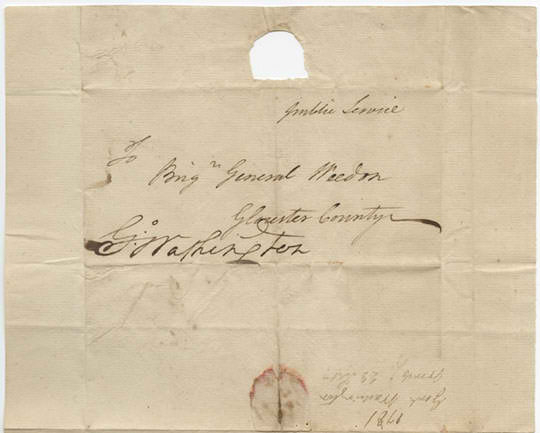 Public Service
To
Brign General Weedon
Gloucester County
Go: Washington
Genl Washington
1781